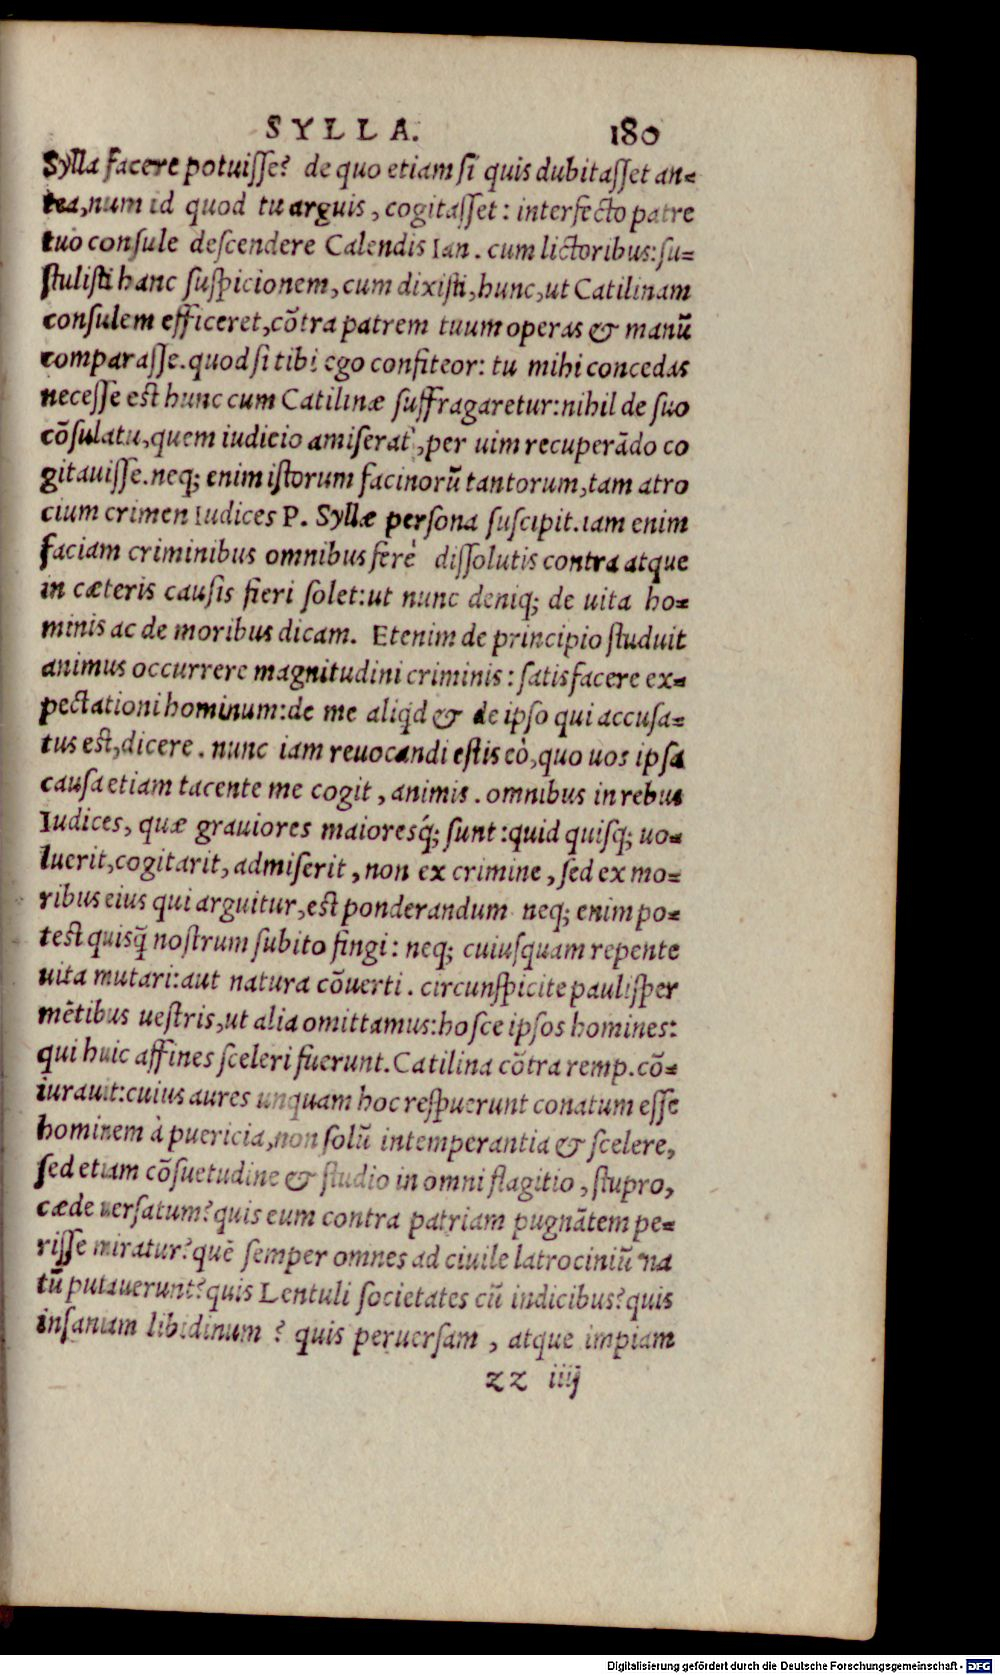 SYLLA. 180
Sylla facere potuiſſe? de quo etiam ſi quis dubitaſſet an=
tea, num id quod tu arguis, cogitaſſet: interfecto patre
tuo conſule deſcendere Calendis Ian. cum lictoribus: ſu=
ſtuliſti hanc ſuſpicionem, cum dixiſti, hunc, ut Catilinam
conſulem efficeret, cōtra patrem tuum operas & manū
comparaſſe. quod ſi tibi ego confiteor: tu mihi concedas
neceſſe eſt hunc cum Catilinæ ſuffragaretur: nihil de ſuo
cōſulatu, quem iudicio amiſerat, per uim recuperādo co
gitauiſſe. neq; enim iſtorum facinorū tantorum, tam atro
cium crimen Iudices P. Syllæ perſona ſuſcipit. iam enim
faciam criminibus omnibus ferè diſſolutis contra atque
in cæteris cauſis fieri ſolet: ut nunc deniq; de uita ho=
minis ac de moribus dicam. Etenim de principio ſtuduit
animus occurrere magnitudini criminis: ſatisfacere ex=
pectationi hominum: de me aliq̇d & de ipſo qui accuſa=
tus eſt, dicere. nunc iam reuocandi eſtis eò, quo uos ipſa
cauſa etiam tacente me cogit, animis. omnibus in rebus
Iudices, quæ grauiores maioresq́; ſunt: quid quiſq; uo=
luerit, cogitarit, admiſerit, non ex crimine, ſed ex mo=
ribus eius qui arguitur, eſt ponderandum neq; enim po=
teſt quisq̄ noſtrum ſubito fingi: neq; cuiuſquam repente
uita mutari: aut natura cōuerti. circunſpicite pauliſper
mētibus ueſtris, ut alia omittamus: hoſce ipſos homines:
qui huic affines ſceleri fuerunt. Catilina cōtra remp. cō=
iurauit: cuius aures unquam hoc reſpuerunt conatum eſſe
hominem à puericia, non ſolū intemperantia & ſcelere,
ſed etiam cōſuetudine & ſtudio in omni flagitio, ſtupro,
cæde uerſatum? quis eum contra patriam pugnātem pe=
riſſe miratur? quē ſemper omnes ad ciuile latrociniū na
tū putauerunt? quis Lentuli ſocietates cū indicibus? quis
inſaniam libidinum ? quis peruerſam , atque impiam
zz iiij
Digitalisierung gefördert durch die Deutsche Forschungsgemeinschaft - DFG